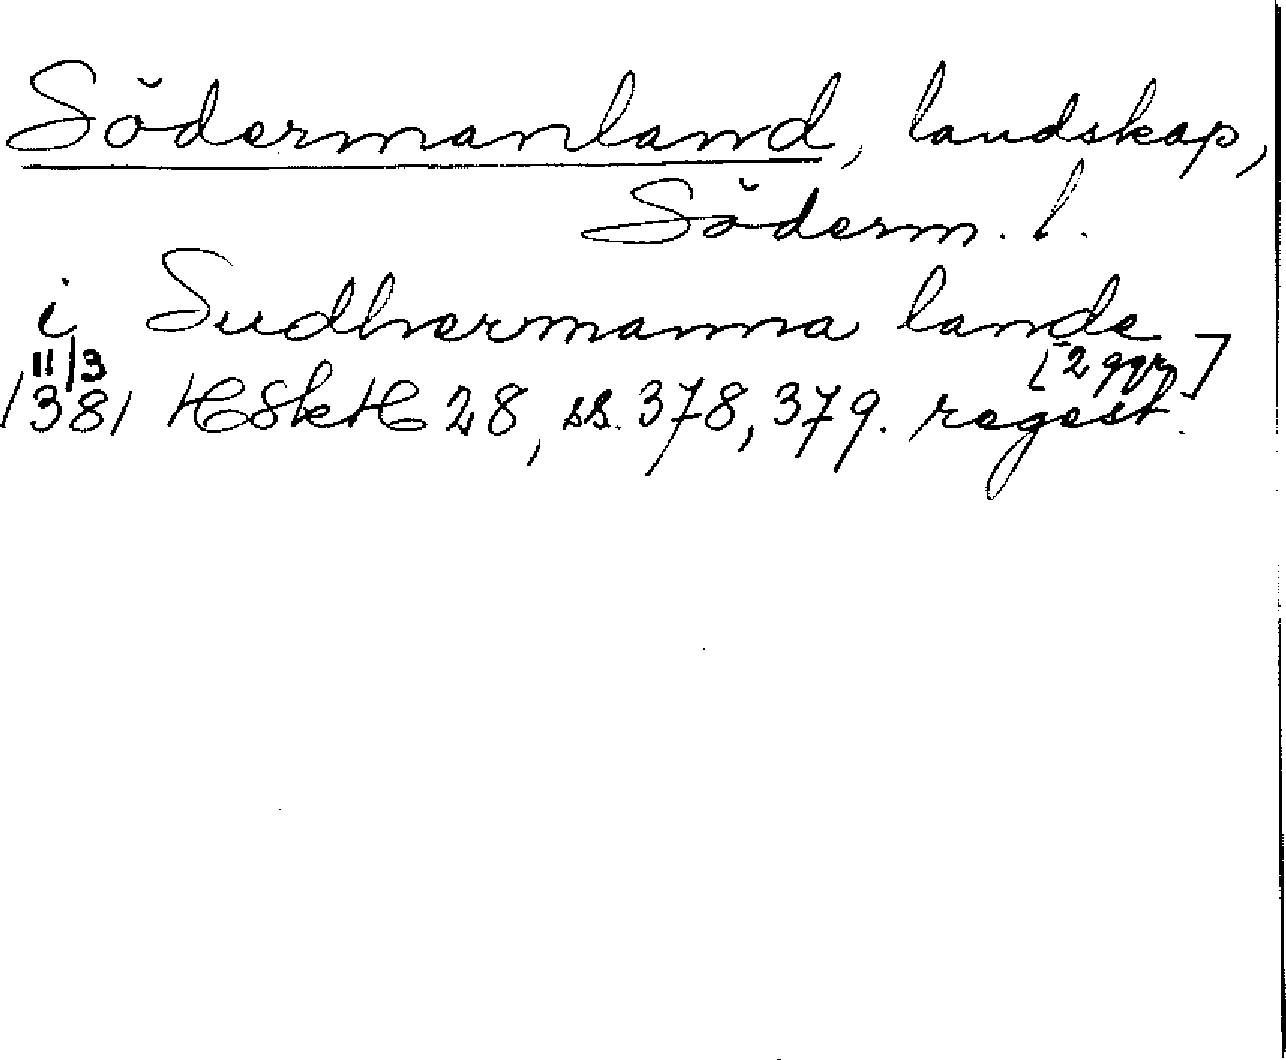 Södermanland, landskap,
Söderm. l.
i Sudhermanna lande
[2 ggr]
11/3
1381 HSkH 28, ss. 378, 379. regest.